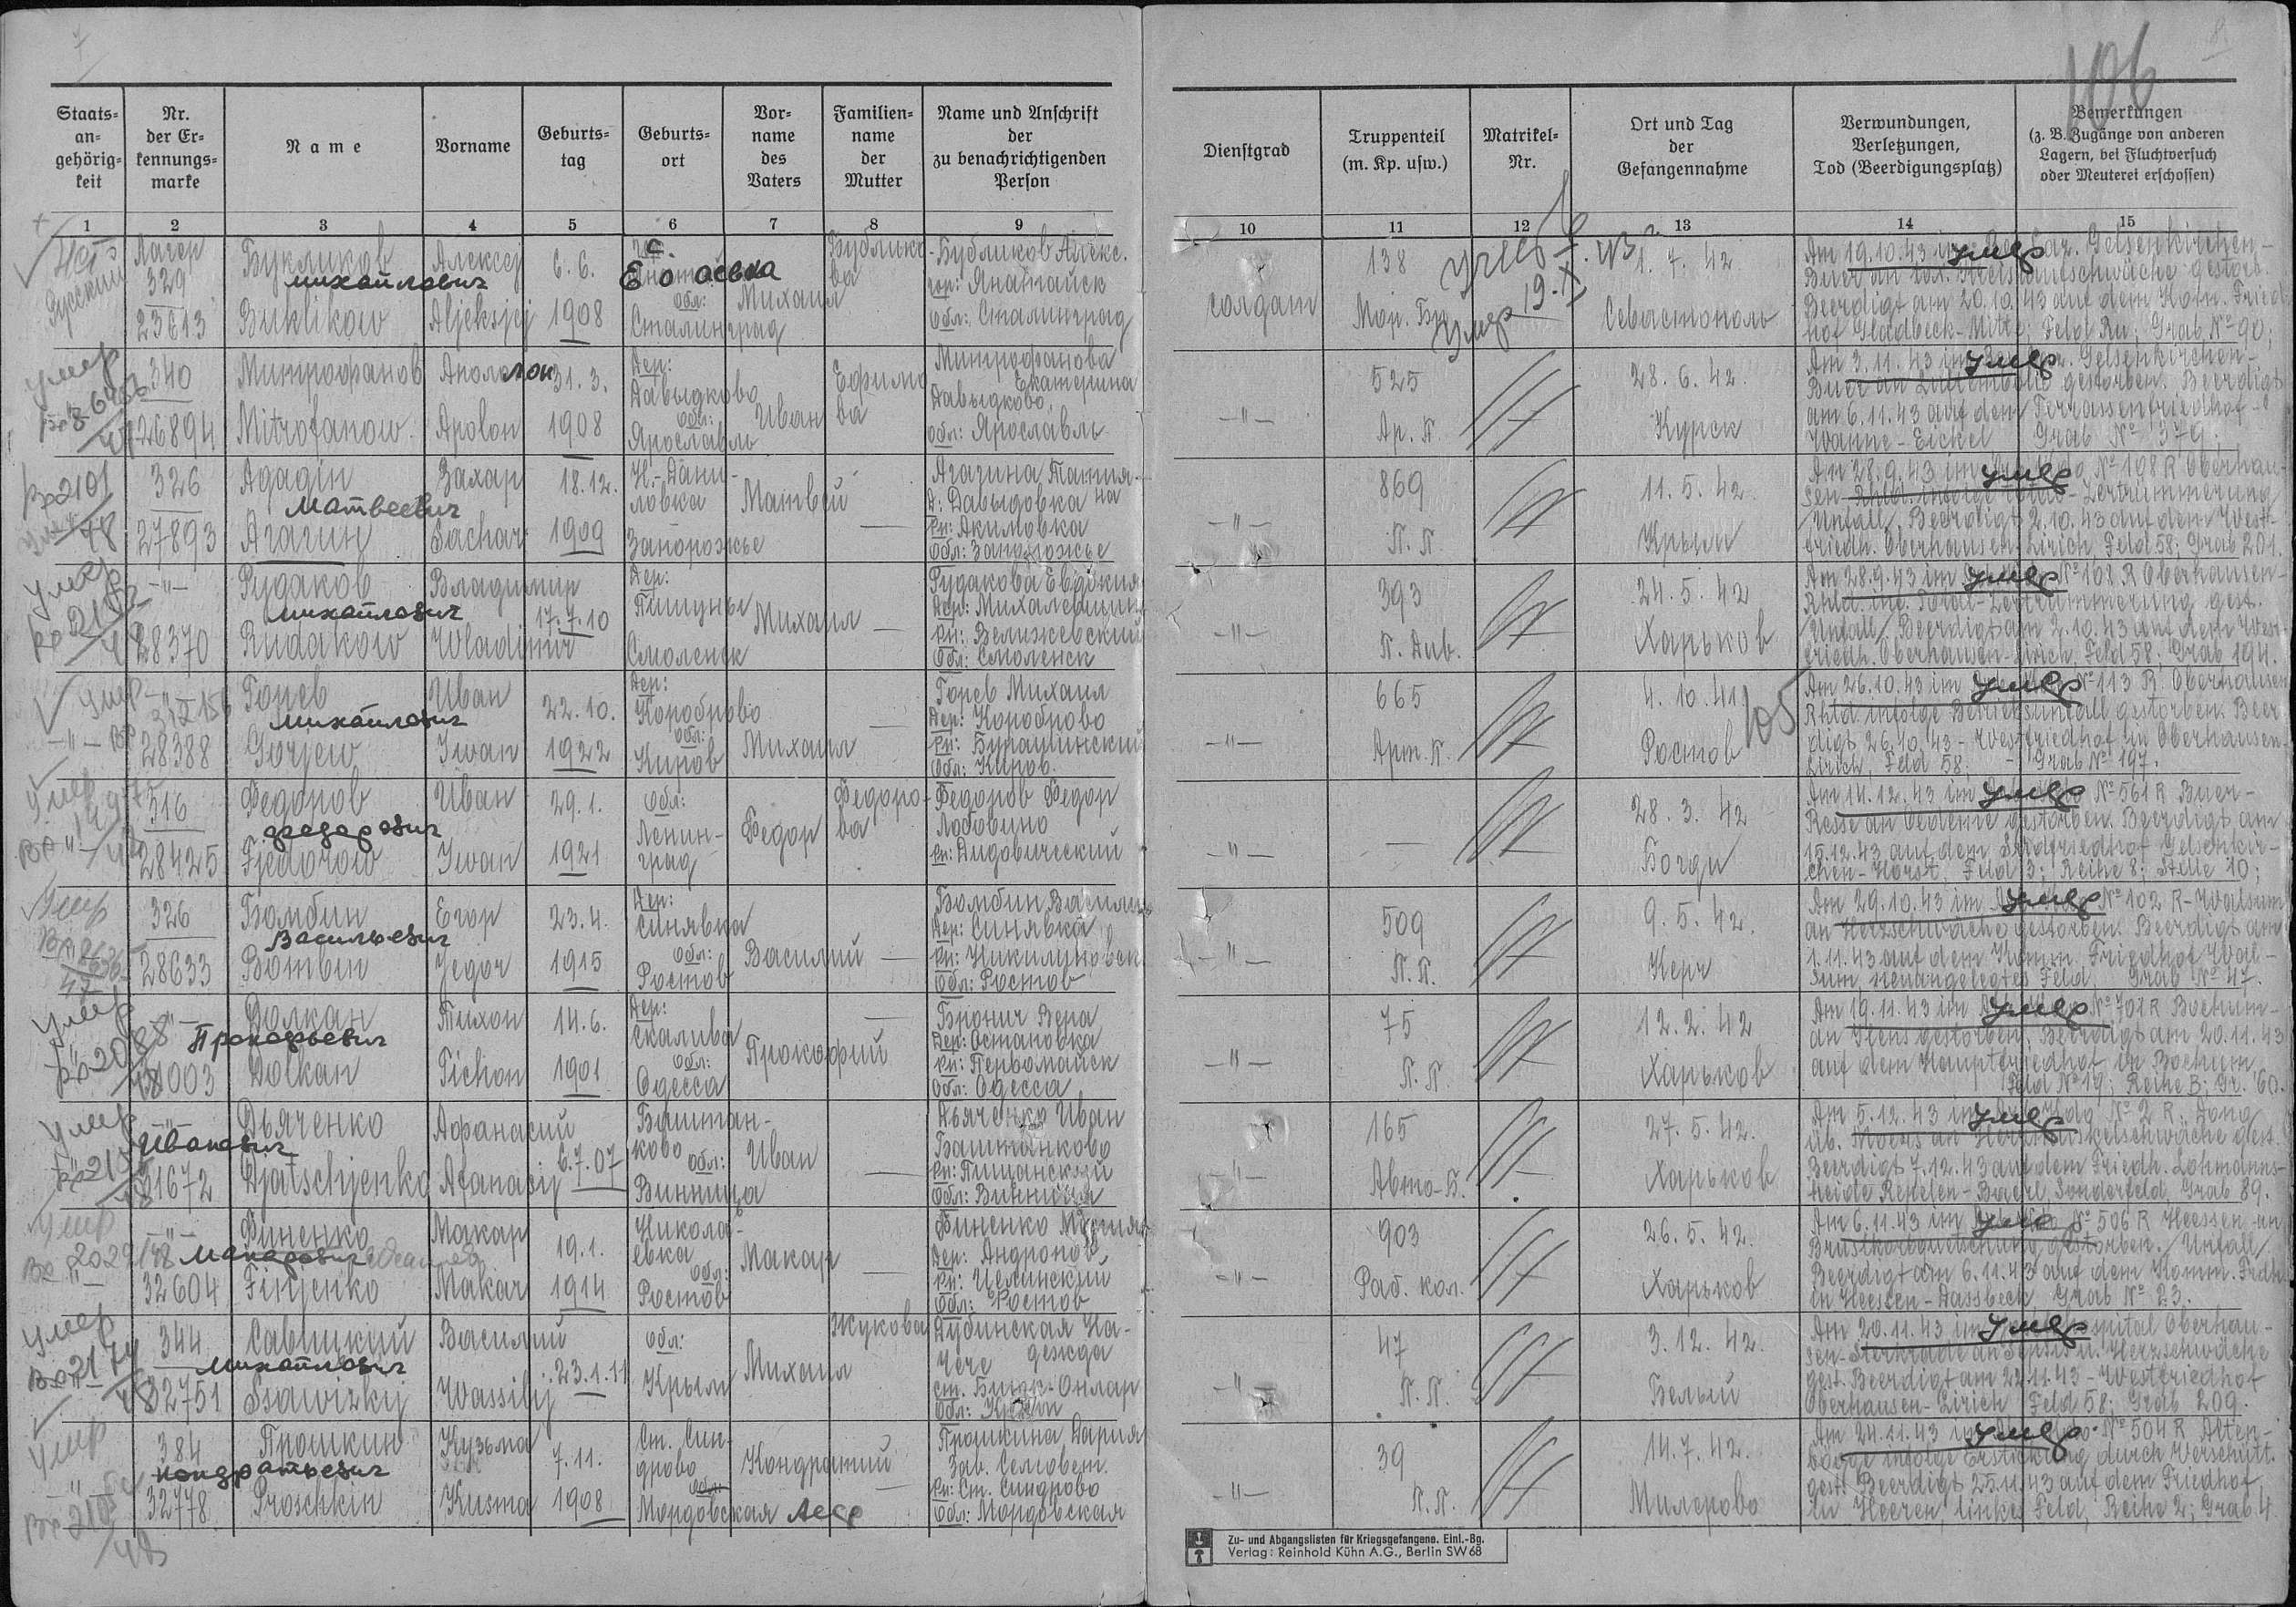 7
8
106
Staats-
an-
gehörig-
keit
Nr.
der Er-
kennungs-
marke
Name
Vorname
Geburts-
tag
Geburts-
ort
Vor-
name
des
Vaters
Familien-
name
der
Mutter
Name und Anschrift
der
zu benachrichtigenden
Person
Dienstgrad
Truppenteil
(m. Kp. usw.)
Matrikel-
Nr.
Ort und Tag
der
Gefangennahme
Verwundungen,
Verletzungen,
Tod (Beerdigungsplatz)
Bemerkungen
(z. B. Zugänge von anderen
Lagern, bei Fluchtversuch
oder Meuterei erschossen)
1 2 3 4 5 6 7 8 9 10 11 12 13 14 15
Русский
Лагер
329
23613
Букликов
михайлович
Buklikow
Алексей
Aljeksjej
6. 6.
1908
обл:
Сталинград
Михаил
Бубликова
Бубликов Алекс.
гор: Янатайск
Обл: Сталинград
солдат
138
Мор. Бр.
умер 19.X
1. 7. 42
Севастополь
Am 19.10.43 Gelsenkirchen-
умер
Buer gestorb.
Beerdigt am 20.10.43 auf dem Kom. Fried
hof Gladbeck-Mitte; Feld Ru; Grab № 90;
умер
340
26894
Митрофанов
Mitrofanow
Аполлон
Apolon
31. 3.
1908
Дер:
Давыдково
обл:
Ярославль
Иван
Ефимова
Митрофанова
Екатерина
Давыдково
Обл: Ярославль
-"-
525
Ар. П.
28. 6. 42.
Курск
Am 3.11.43 im умер Gelsenkirchen-
Buer an gestorben. Beerdigt
am 6.11.43 auf dem Terrassenfriedhof-
Wanne-Eickel Grab № 379.
Вр2101
48
326
27893
Agagin
Матвеевич
Агагин
Захар
Sachar
18.12.
1909
Н.-Дани-
ловка
Запорожье
Матвей
—
Агагина Татия-
на
Д: Давыдовка
Рн: Акимовка
Обл: Запорожье
-"-
869
П. П.
11. 5. 42
Крым
Am 28.9.43 im умер № 108 R Oberhau-
sen-Rhld. infolge Total-Zertrümmerung
/Unfall/. Beerdigt 2.10.43 auf dem West-
friedh. Oberhausen-Lirich, Feld 58; Grab 201.
умер
-"-
28370
Рудаков
михайлович
Rudakow
Владимир
Wladimir
17.7.10
Дер:
Пишунье
Смоленск
Михаил
—
Рудакова Евдокия
Дер:
Рн: Велижевский
Обл: Смоленск
-"-
393
П. Див.
24. 5. 42
Харьков
Am 28.9.43 im умер № 108 R Oberhausen-
Rhld. inf. Total-Zertrümmerung gest.
/Unfall/ Beerdigt am 2.10.43 auf dem West-
friedh. Oberhausen-Lirich, Feld 58; Grab 194.
умер
28388
Горев
михайлович
Gorjew
Иван
Iwan
22.10.
1922
Дер:
Короброво
обл:
Киров
Михаил
—
Горев Михаил
Дер: Короброво
Обл: Киров
-"-
665
Арт. П.
4. 10. 41
105
Ростов
Am 26.10.43 im умер № 113 R. Oberhausen
Rhld infolge Betriebsunfall gestorben. Beer
digt 26.10.43 - Westfriedhof in Oberhausen
Lirich, Feld 58; - Grab № 197.
умер
316
28425
Федоров
федорович
Fjedorow
Иван
Iwan
29. 1.
1921
Обл:
Ленин-
град
Федор
Федоро-
ва
Федоров Федор
Лобовино
Рн: Дидовический
-"-
—
28. 3. 42
Богди
Am 14.12.43 im умер № 561 R Buer-
Resse an Oedeme gestorben. Beerdigt am
15.12.43 auf dem Südfriedhof Gelsenkir-
chen-Horst, Feld 3; Reihe 8; Stelle 10;
умер
326
28633
Бомбин
Васильевич
Bombin
Егор
Jegor
23. 4.
1915
Дер:
Синявка
обл:
Ростов
Василий
—
Бомбин Василий
Дер: Синявка
Обл: Ростов
-"-
509
П. П.
9. 5. 42.
Керч
Am 29.10.43 im умер № 102 R-Walsum
an Herzschwäche gestorben. Beerdigt am
1.11.43 auf dem Komm. Friedhof Wal-
sum, neuangelegtes Feld, Grab № 47.
умер
-"-
31003
Долкан
Прокофьевич
Dolkan
Тихон
Tichon
14. 6.
1901
Дер:
Скалива
обл:
Одесса
Прокофий
—
Бронич Вера
Дер: Остановка
Рн: Первомайск
Обл: Одесса
-"-
75
П. П.
12. 2. 42
Харьков
Am 19.11.43 im умер № 701 R Bochum-
an Ileus gestorben. Beerdigt am 20.11.43
auf dem Hauptfriedhof in Bochum.
Feld № 19; Reihe B; Gr. 60.
умер
-"-
31672
Дьяченко
Иванович
Djatschjenko
Афанасий
Afanasij
6.7.07
Баштан-
ково
обл:
Винница
Иван
—
Дьяченко Иван
Баштанково
Рн: Пищанский
Обл: Винница
-"-
165
Авто-Б.
27. 5. 42.
Харьков
Am 5.12.43 im умер № 2 R. Dong
üb. Moers an Herzmuskelschwäche gest.
Beerdigt 7.12.43 auf dem Friedh. Lohmanns-
heide Repelen-Baerl, Sonderfeld, Grab 89.
умер
Вр 2029/48
-"-
32604
Финенко
макарович
Finjenko
Макар
Makar
19.1.
1914
Никола-
евка
обл:
Ростов
Макар
—
Финенко Мария
Дер: Андропов
Рн: Целинский
Обл: Ростов
-"-
903
Раб. кол.
26. 5. 42.
Харьков
Am 6.11.43 im умер № 506 R Heessen an
Brustkorbquetschung gestorben. /Unfall/
Beerdigt am 6.11.43 auf dem Komm. Frdh
in Heessen-Dassbeck, Grab № 23.
умер
344
32751
Савицкий
михайлович
Ssawizkij
Василий
Wassilij
23.1.11
обл:
Крым
Михаил
Жукова
Дубинская На-
дежда
ст. Биюк-Онлар
Обл: Крым
-"-
47
П. П.
3. 12. 42.
Белый
Am 20.11.43 im умер Oberhau-
sen-Sterkrade an Sepsis u. Herzschwäche
gest. Beerdigt am 22.11.43 - Westfriedhof
Oberhausen-Lirich Feld 58; Grab 209.
умер
384
32778
Прошкин
кондратьевич
Proschkin
Кузьма
Kusma
7.11.
1908
Ст. Син-
дрово
обл:
Мордовская АССР
Кондратий
—
Прошкина Дария
Зав. Селовет.
Рн: Ст. Синдрово
Обл: Мордовская
-"-
39
П. П.
14. 7. 42.
Милерово
Am 24.11.43 im умер № 504 R Alten-
bögge infolge Erstickung durch Verschütt.
gest. Beerdigt 25.11.43 auf dem Friedhof
in Heeren, linkes Feld, Reihe 2; Grab 4
Zu- und Abgangslisten für Kriegsgefangene. Einl.-Bg.
Verlag: Reinhold Kühn A.G., Berlin SW 68